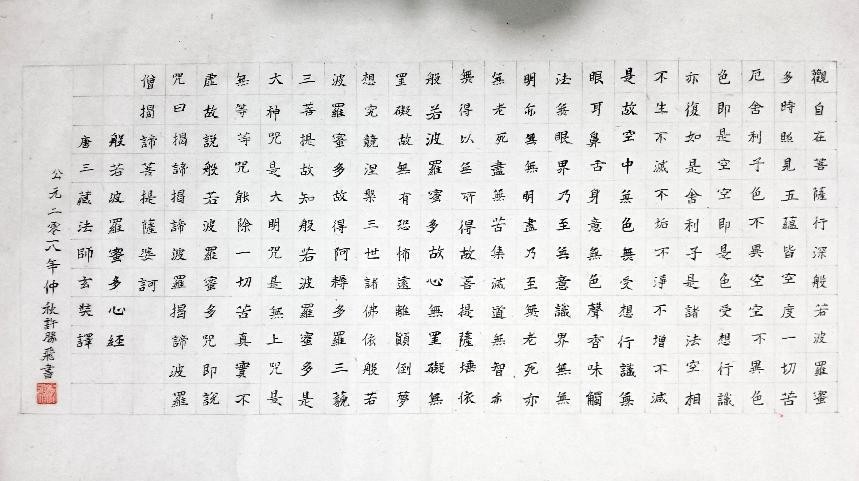 觀自在菩薩行深般若波羅蜜
多時照見五蘊皆空度一切苦
厄舍利子色不異空空不異色
色即是空空即是色受想行識
亦復如是舍利子是諸法空相
不生不滅不垢不淨不增不減
是故空中無色無受想行識無
眼耳鼻舌身意無色聲香味觸
法無眼界乃至無意識界無無
明亦無無明盡乃至無老死亦
無老死盡無苦集滅道無智亦
無得以無所得故菩提薩埵依
般若波羅蜜多故心無罣礙無
罣礙故無有恐怖遠離顛倒夢
想究竟涅槃三世諸佛依般若
波羅蜜多故得阿耨多羅三藐
三菩提故知般若波羅蜜多是
大神咒是大明咒是無上咒是
無等等咒能除一切苦真實不
虛故說般若波羅蜜多咒即說
咒曰揭諦揭諦波羅揭諦波羅
僧揭諦菩提薩婆訶
般若波羅蜜多心經
唐三藏法師玄奘譯
公元二零一八年仲秋許勝飛書